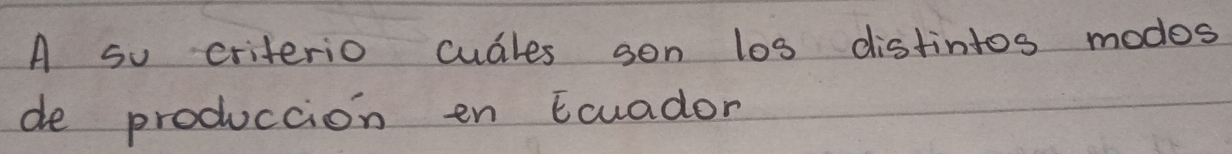 A su criterio cuáles son los distintos modos
de producción en Ecuador